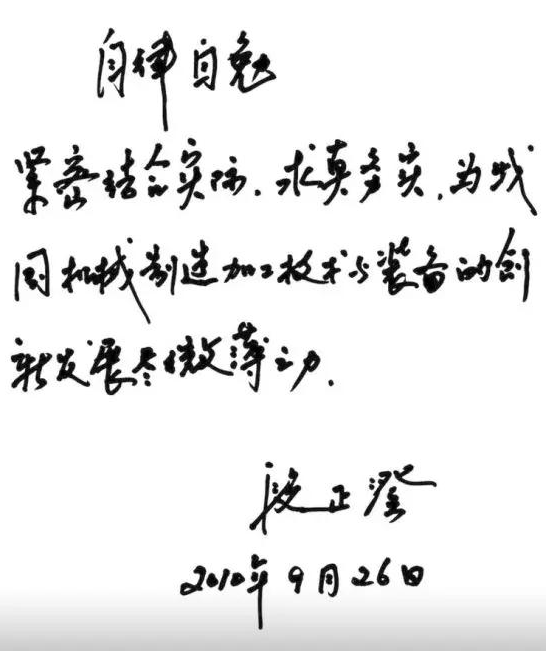 自律自勉
紧密结合实际，求真务实，为我
国机械制造加工技术与装备的创
新发展尽微薄之力.
段正澄
2010年9月26日